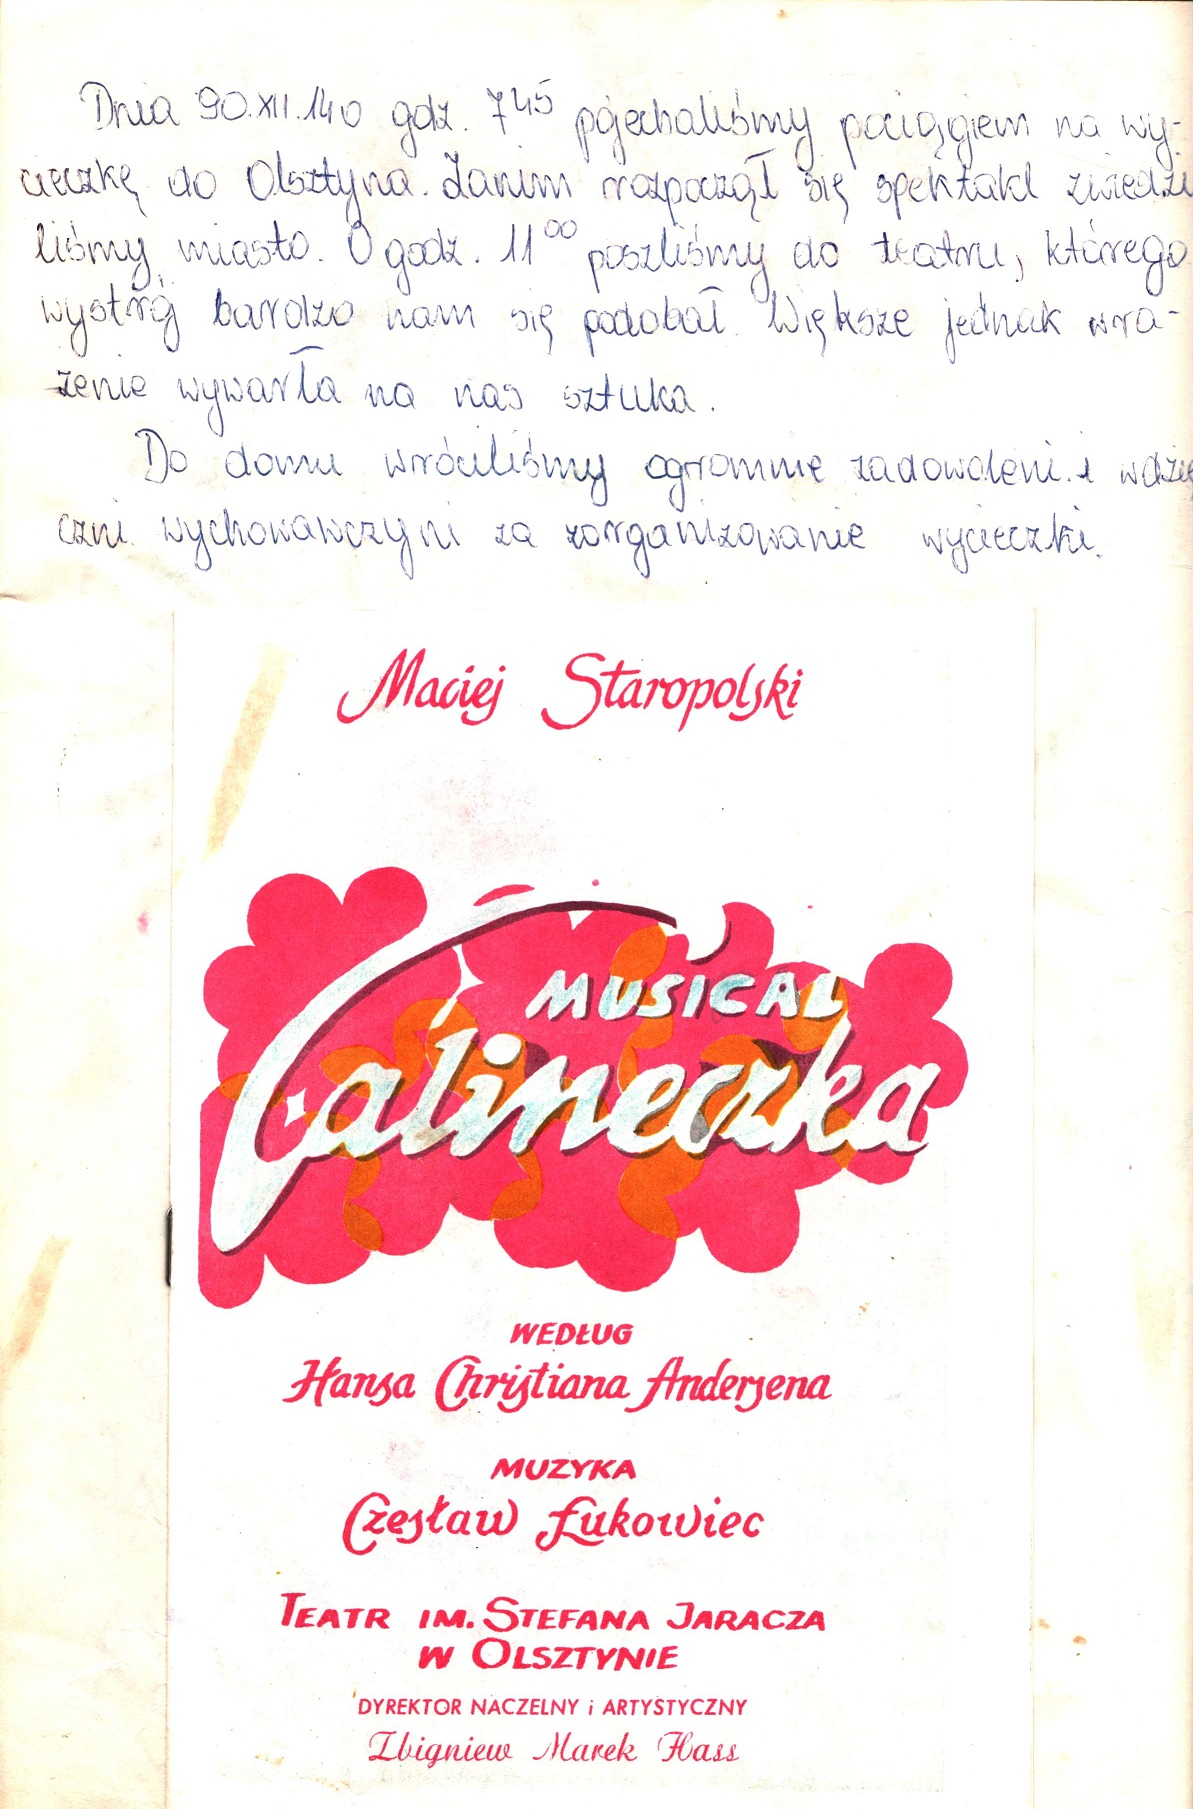 Dnia 90.XII.14 o godz. 7⁴⁵ pojechaliśmy pociągiem na wy-
cieczkę do Olsztyna. Zanim rozpoczął się spektakl zwiedzi
liśmy miasto. O godz. 11⁰⁰ poszliśmy do teatru, którego
wystrój bardzo nam się podobał. Większe jednak wra-
żenie wywarła na nas sztuka.
Do domu wróciliśmy ogromnie zadowoleni i wdzię
czni wychowawczyni za zorganizowanie wycieczki.
Maciej Staropolski
MUSICAL
Calineczka
WEDŁUG
Hansa Christiana Andersena
MUZYKA
Czesław Łukowiec
TEATR IM. STEFANA JARACZA
W OLSZTYNIE
DYREKTOR NACZELNY i ARTYSTYCZNY
Zbigniew Marek Hass